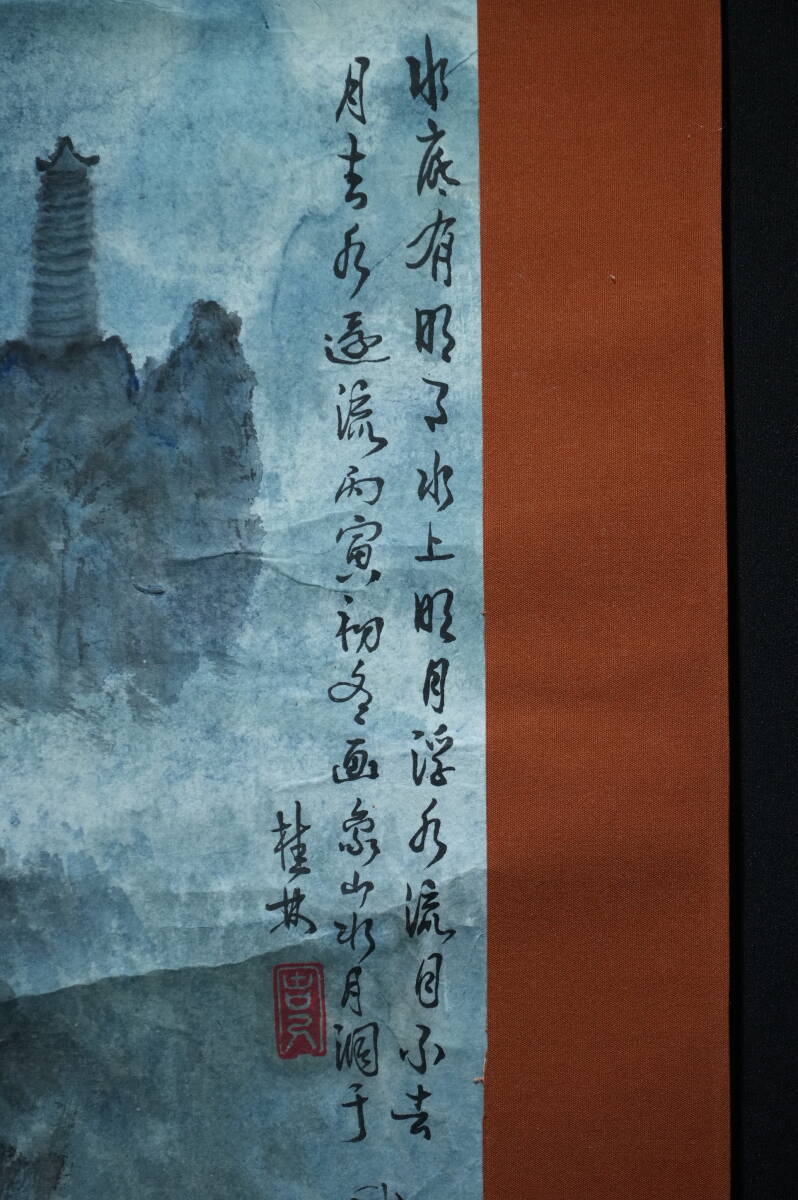 水底有明月水上明月浮水流月不去
月去水还流丙寅初冬画象山水月洞于
桂林